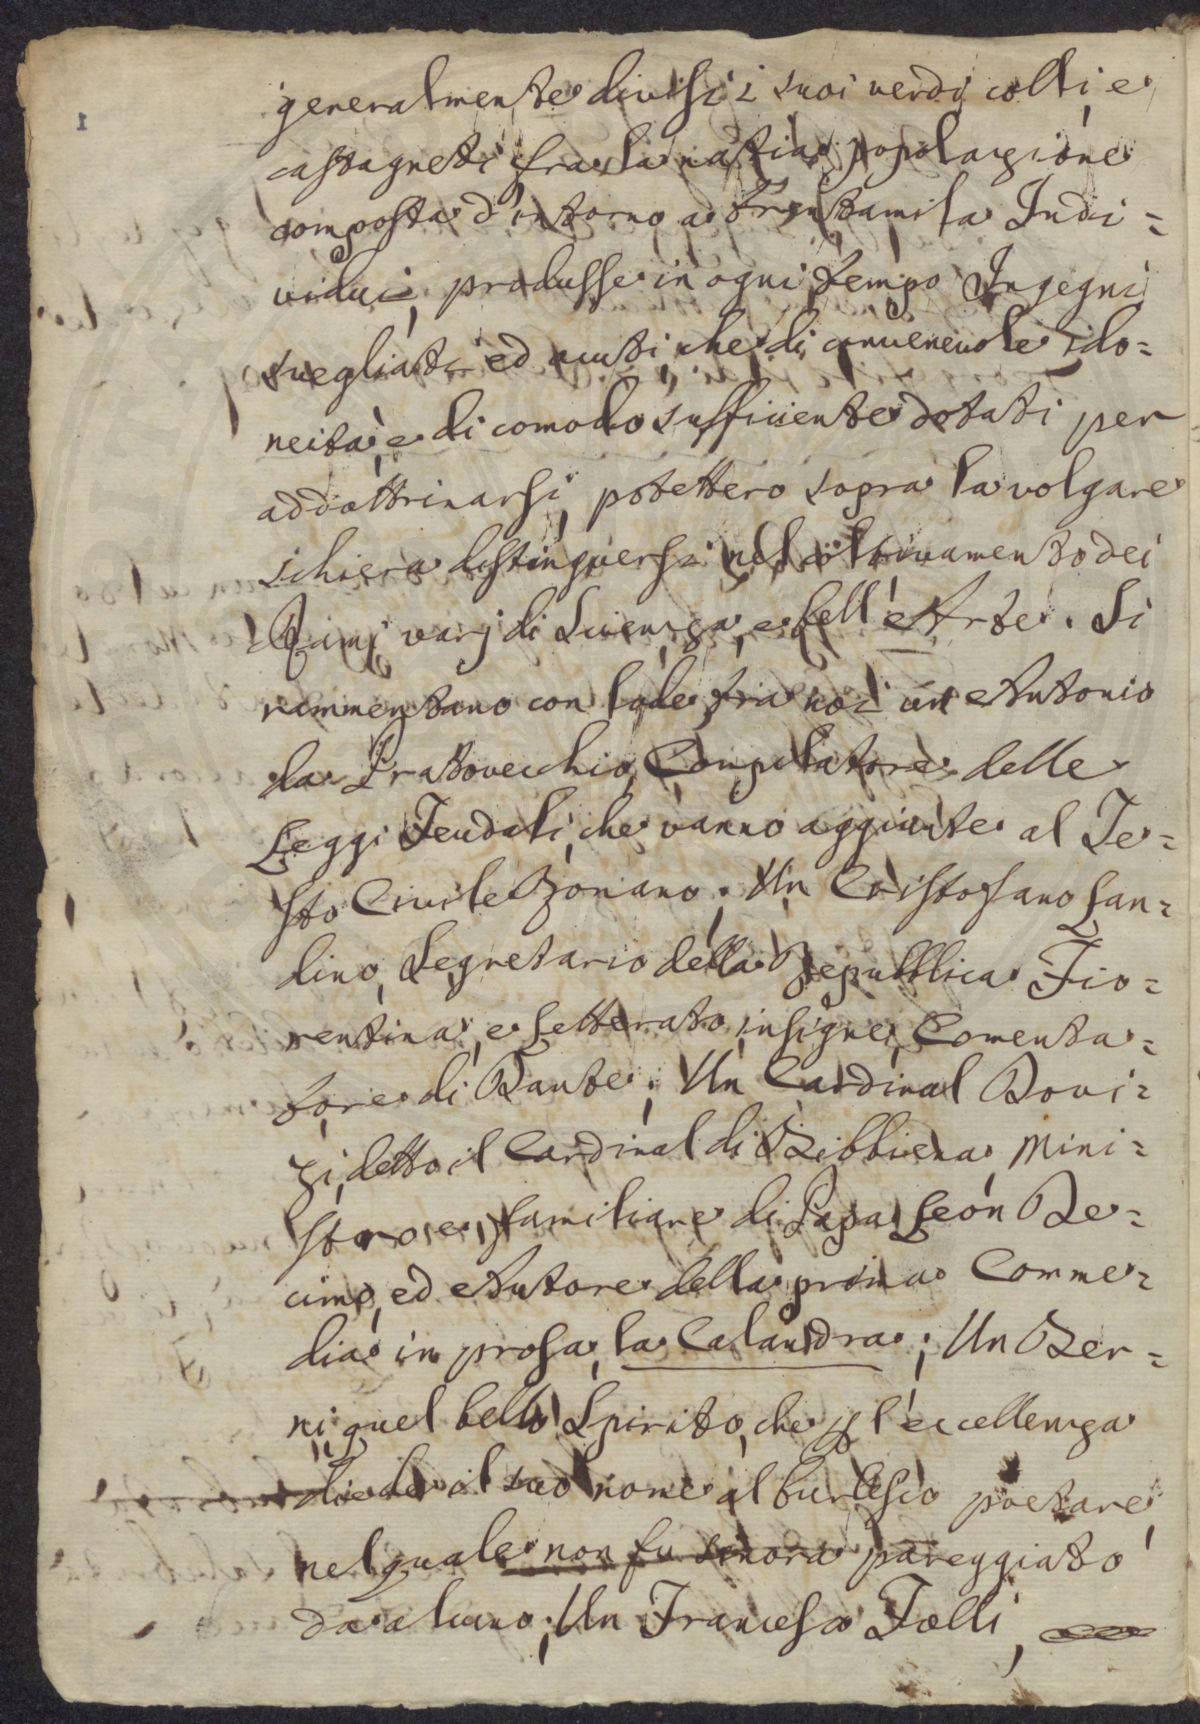 1
generalmente divisi i suoi verdi colli, e
castagneti fra la natia popolazione
composta d'intorno a trentamila Indi=
vidui, produsse in ogni tempo Ingegni
svegliati ed acuti, che di convenevole ido=
neità, e di comodo sufficiente dotati per
addottrinarsi, potettero sopra la volgare
schiera distinguersi nel coltivamento dei
Rami varj di Scienza, e bell'Arte. Si
rammentano con lode fra noi un Antonio
da Pratovecchio, Compilatore delle
Leggi Feudali, che vanno aggiunte al Te=
sto Civile Romano. Un Cristofano Lan=
dino, Segretario della Repubblica Fio=
rentina, e Letterato insigne, Comenta=
tore di Dante. Un Cardinal Dovi=
zi, detto il Cardinal di Bibbiena, Mini=
stro, e familiare di Papa Leon De=
cimo, ed Autore della prima Comme=
dia in prosa, la Calandra; Un Ber=
ni quel bello Spirito, che p l'eccellenza
diede il suo nome al burlesco poetare
nel quale non fu sinora pareggiato
da alcuno; Un Francesco Folli,